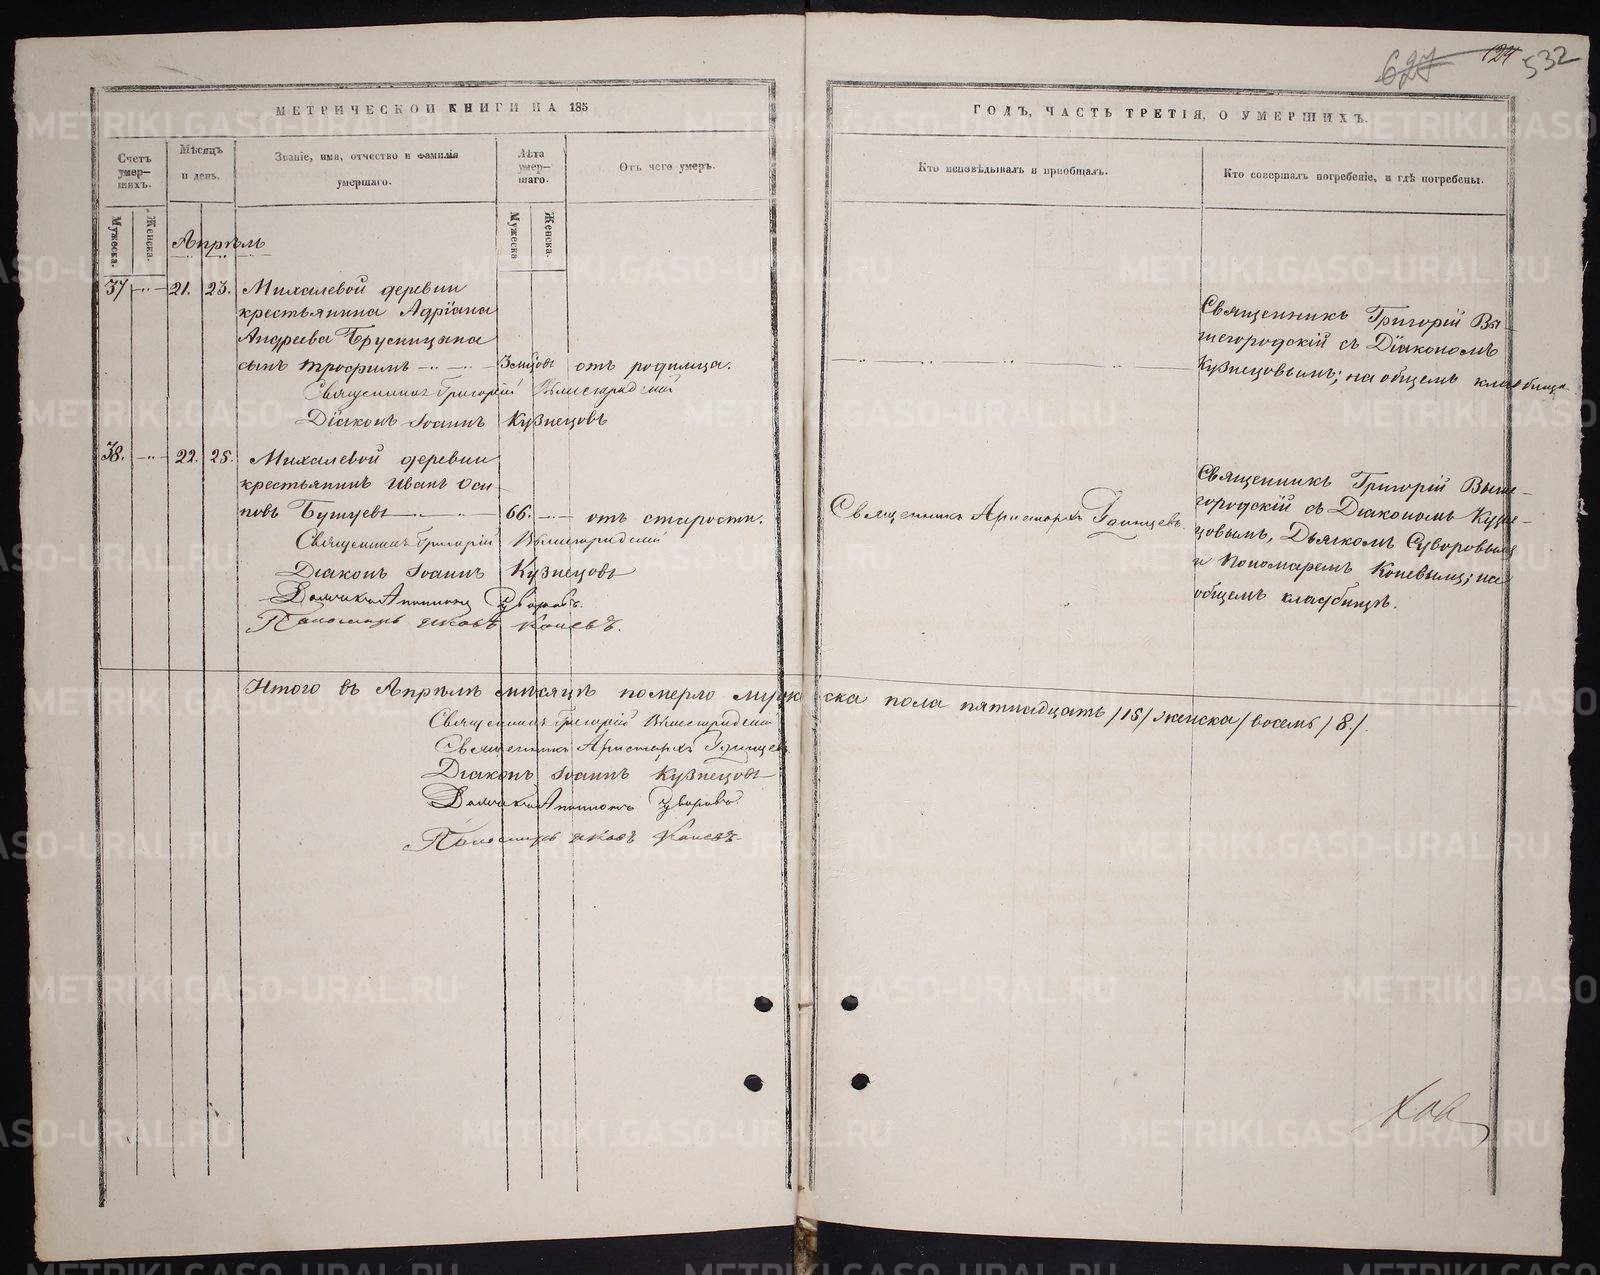 627 124 532
МЕТРИЧЕСКОЙ КНИГИ НА 185
ГОДЪ, ЧАСТЬ ТРЕТІЯ, О УМЕРШИХЪ.
Счетъ умер-шихъ.
Мѣсяцъ и день.
Званіе, имя, отчество и фамилія умершаго.
Лѣта умер-шаго.
Отъ чего умеръ.
Кто исповѣдывалъ и пріобщалъ.
Кто совершалъ погребеніе, и гдѣ погребены.
Мужеска.
Женска.
Мужеска
Женска.
Апрѣль
37 21. 23. Михалевой деревни
крестьянина Адріана
Андреева Брусницына
сынъ Трофимъ 3 мѣсяцъ отъ родимца.
Священникъ Григорій Вышегородскій
Діаконъ Іоаннъ Кузнецовъ
Священникъ Григорій Вы-
шегородскій съ Діакономъ
Кузнецовымъ; на общемъ кладбищѣ
38. 22. 25. Михалевой деревни
крестьянинъ Иванъ Оси-
повъ 66. отъ старости.
Священникъ Григорій Вышегородскій
Діаконъ Іоаннъ Кузнецовъ
Дьячекъ Суворовъ.
Пономарь Яковъ Коневъ.
Священникъ Аристархъ
Священникъ Григорій Выше-
городскій съ Діакономъ Кузне-
цовымъ, Дьячкомъ Суворовымъ
и Пономаремъ Коневымъ; на
общемъ кладбищѣ.
Итого въ Апрѣлѣ мѣсяцѣ померло мужеска пола пятнадцать /15/ женска /восемь /8/.
Священникъ Григорій Вышегородскій
Священникъ Аристархъ
Діаконъ Іоаннъ Кузнецовъ
Дьячекъ Суворовъ
Пономарь Яковъ Коневъ
METRIKI.GASO-URAL.RU